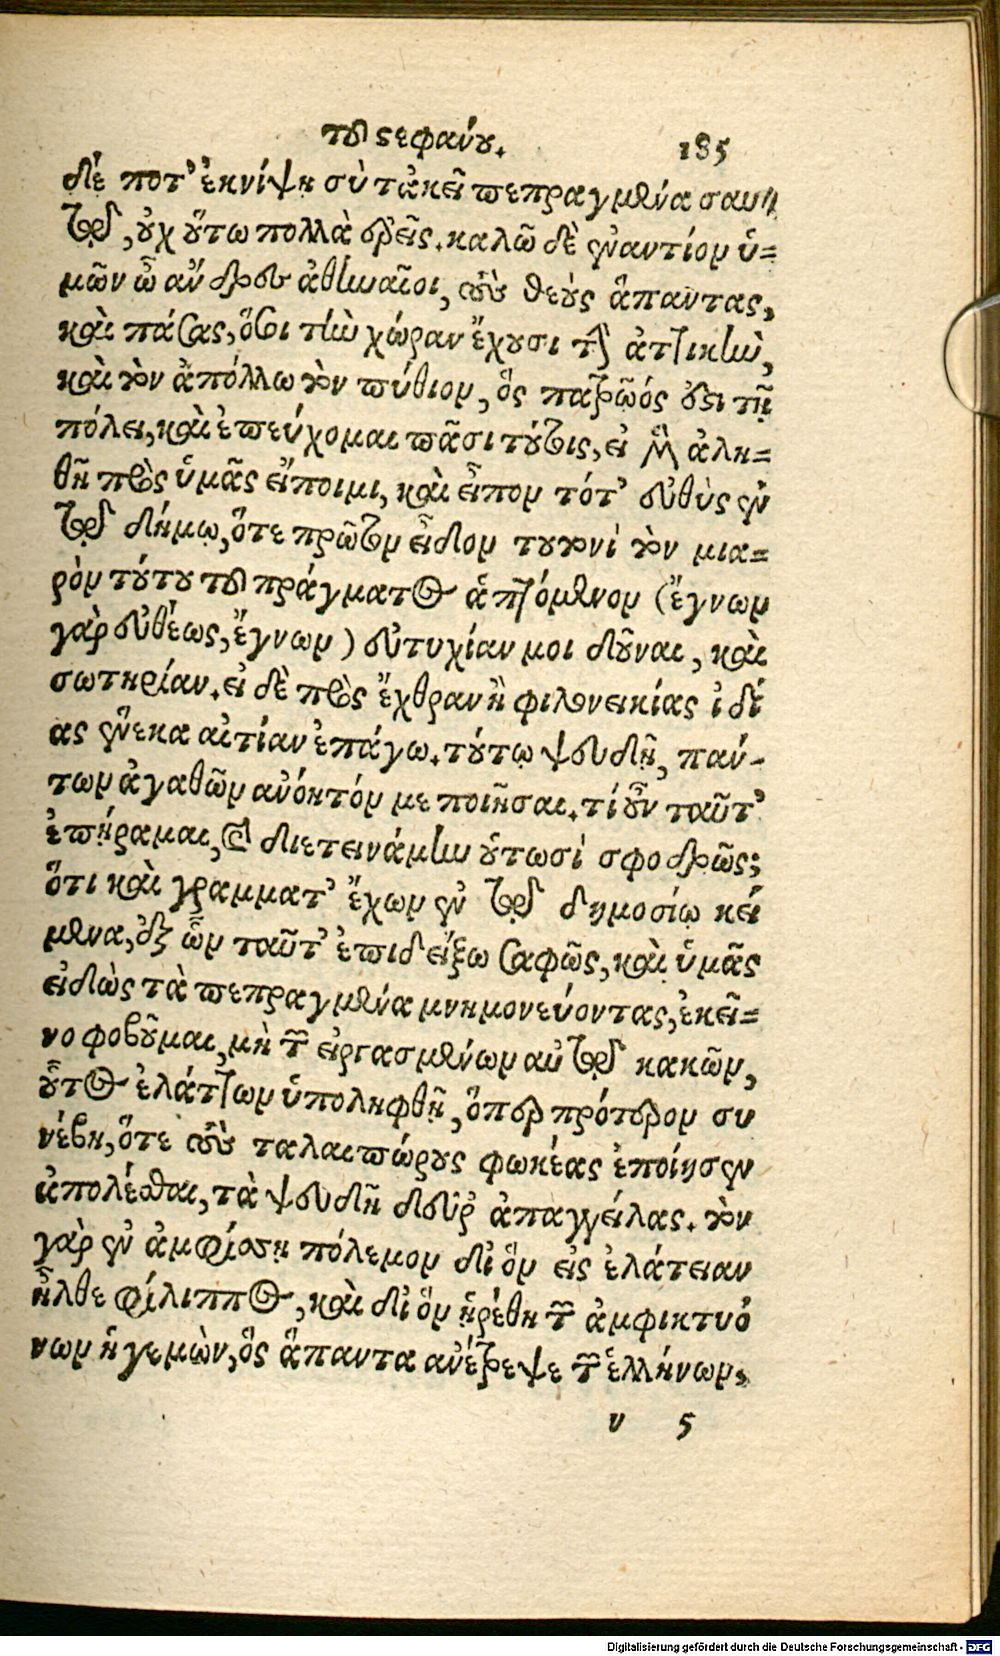 τοῦ στεφάνου. 185
δέ ποτ' ἐκνίψῃ σὺ τἀκεῖ πεπραγμένα σαυ//
τῷ, οὐχ οὕτω πολλὰ ἐρεῖς. καλῶ δὲ ἐναντίον ὑ=
μῶν ὦ ἄνδρες ἀθηναῖοι, τοὺς θεοὺς ἅπαντας,
καὶ πάσας, ὅσοι τὴν χώραν ἔχουσι τὴν ἀττικὴν,
καὶ τὸν ἀπόλλω τὸν πύθιον, ὃς πατρῷός ἐστι τῇ
πόλει, καὶ ἐπεύχομαι πᾶσι τούτοις, εἰ μὲν ἀλη=
θῆ πρὸς ὑμᾶς εἴποιμι, καὶ εἶπον τότ' εὐθὺς ἐν
τῷ δήμῳ, ὅτε πρῶτον εἶδον τουτονὶ τὸν μια=
ρὸν τούτου τοῦ πράγματος ἁπτόμενον (ἔγνων
γὰρ εὐθέως, ἔγνων) εὐτυχίαν μοι δοῦναι, καὶ
σωτηρίαν. εἰ δὲ πρὸς ἔχθραν ἢ φιλονεικίας ἰδί
ας ἕνεκα αἰτίαν ἐπάγω. τούτῳ ψευδῆ, πάν-
των ἀγαθῶν ἀνόητόν με ποιῆσαι. τί οὖν ταῦτ'
ἐπήραμαι, καὶ διετεινάμην οὑτωσὶ σφοδρῶς;
ὅτι καὶ γράμματ' ἔχων ἐν τῷ δημοσίῳ κεί
μενα, ἐξ ὧν ταῦτ' ἐπιδείξω σαφῶς, καὶ ὑμᾶς
εἰδὼς τὰ πεπραγμένα μνημονεύοντας, ἐκεῖ=
νο φοβοῦμαι, μὴ τῶν εἰργασμένων αὐτῷ κακῶν,
οὗτος ἐλάττων ὑποληφθῇ, ὅπερ πρότερον συ
νέβη, ὅτε τοὺς ταλαιπώρους φωκέας ἐποίησεν
ἀπολέσθαι, τὰ ψευδῆ δεῦρ' ἀπαγγείλας. τὸν
γὰρ ἐν ἀμφίσσῃ πόλεμον δι' ὃν εἰς ἐλάτειαν
ἦλθε φίλιππος, καὶ δι' ὃν ᾑρέθη τῶν ἀμφικτυό
νων ἡγεμὼν, ὃς ἅπαντα ἀνέτρεψε τῶν ἑλλήνων,
υ 5
Digitalisierung gefördert durch die Deutsche Forschungsgemeinschaft - DFG